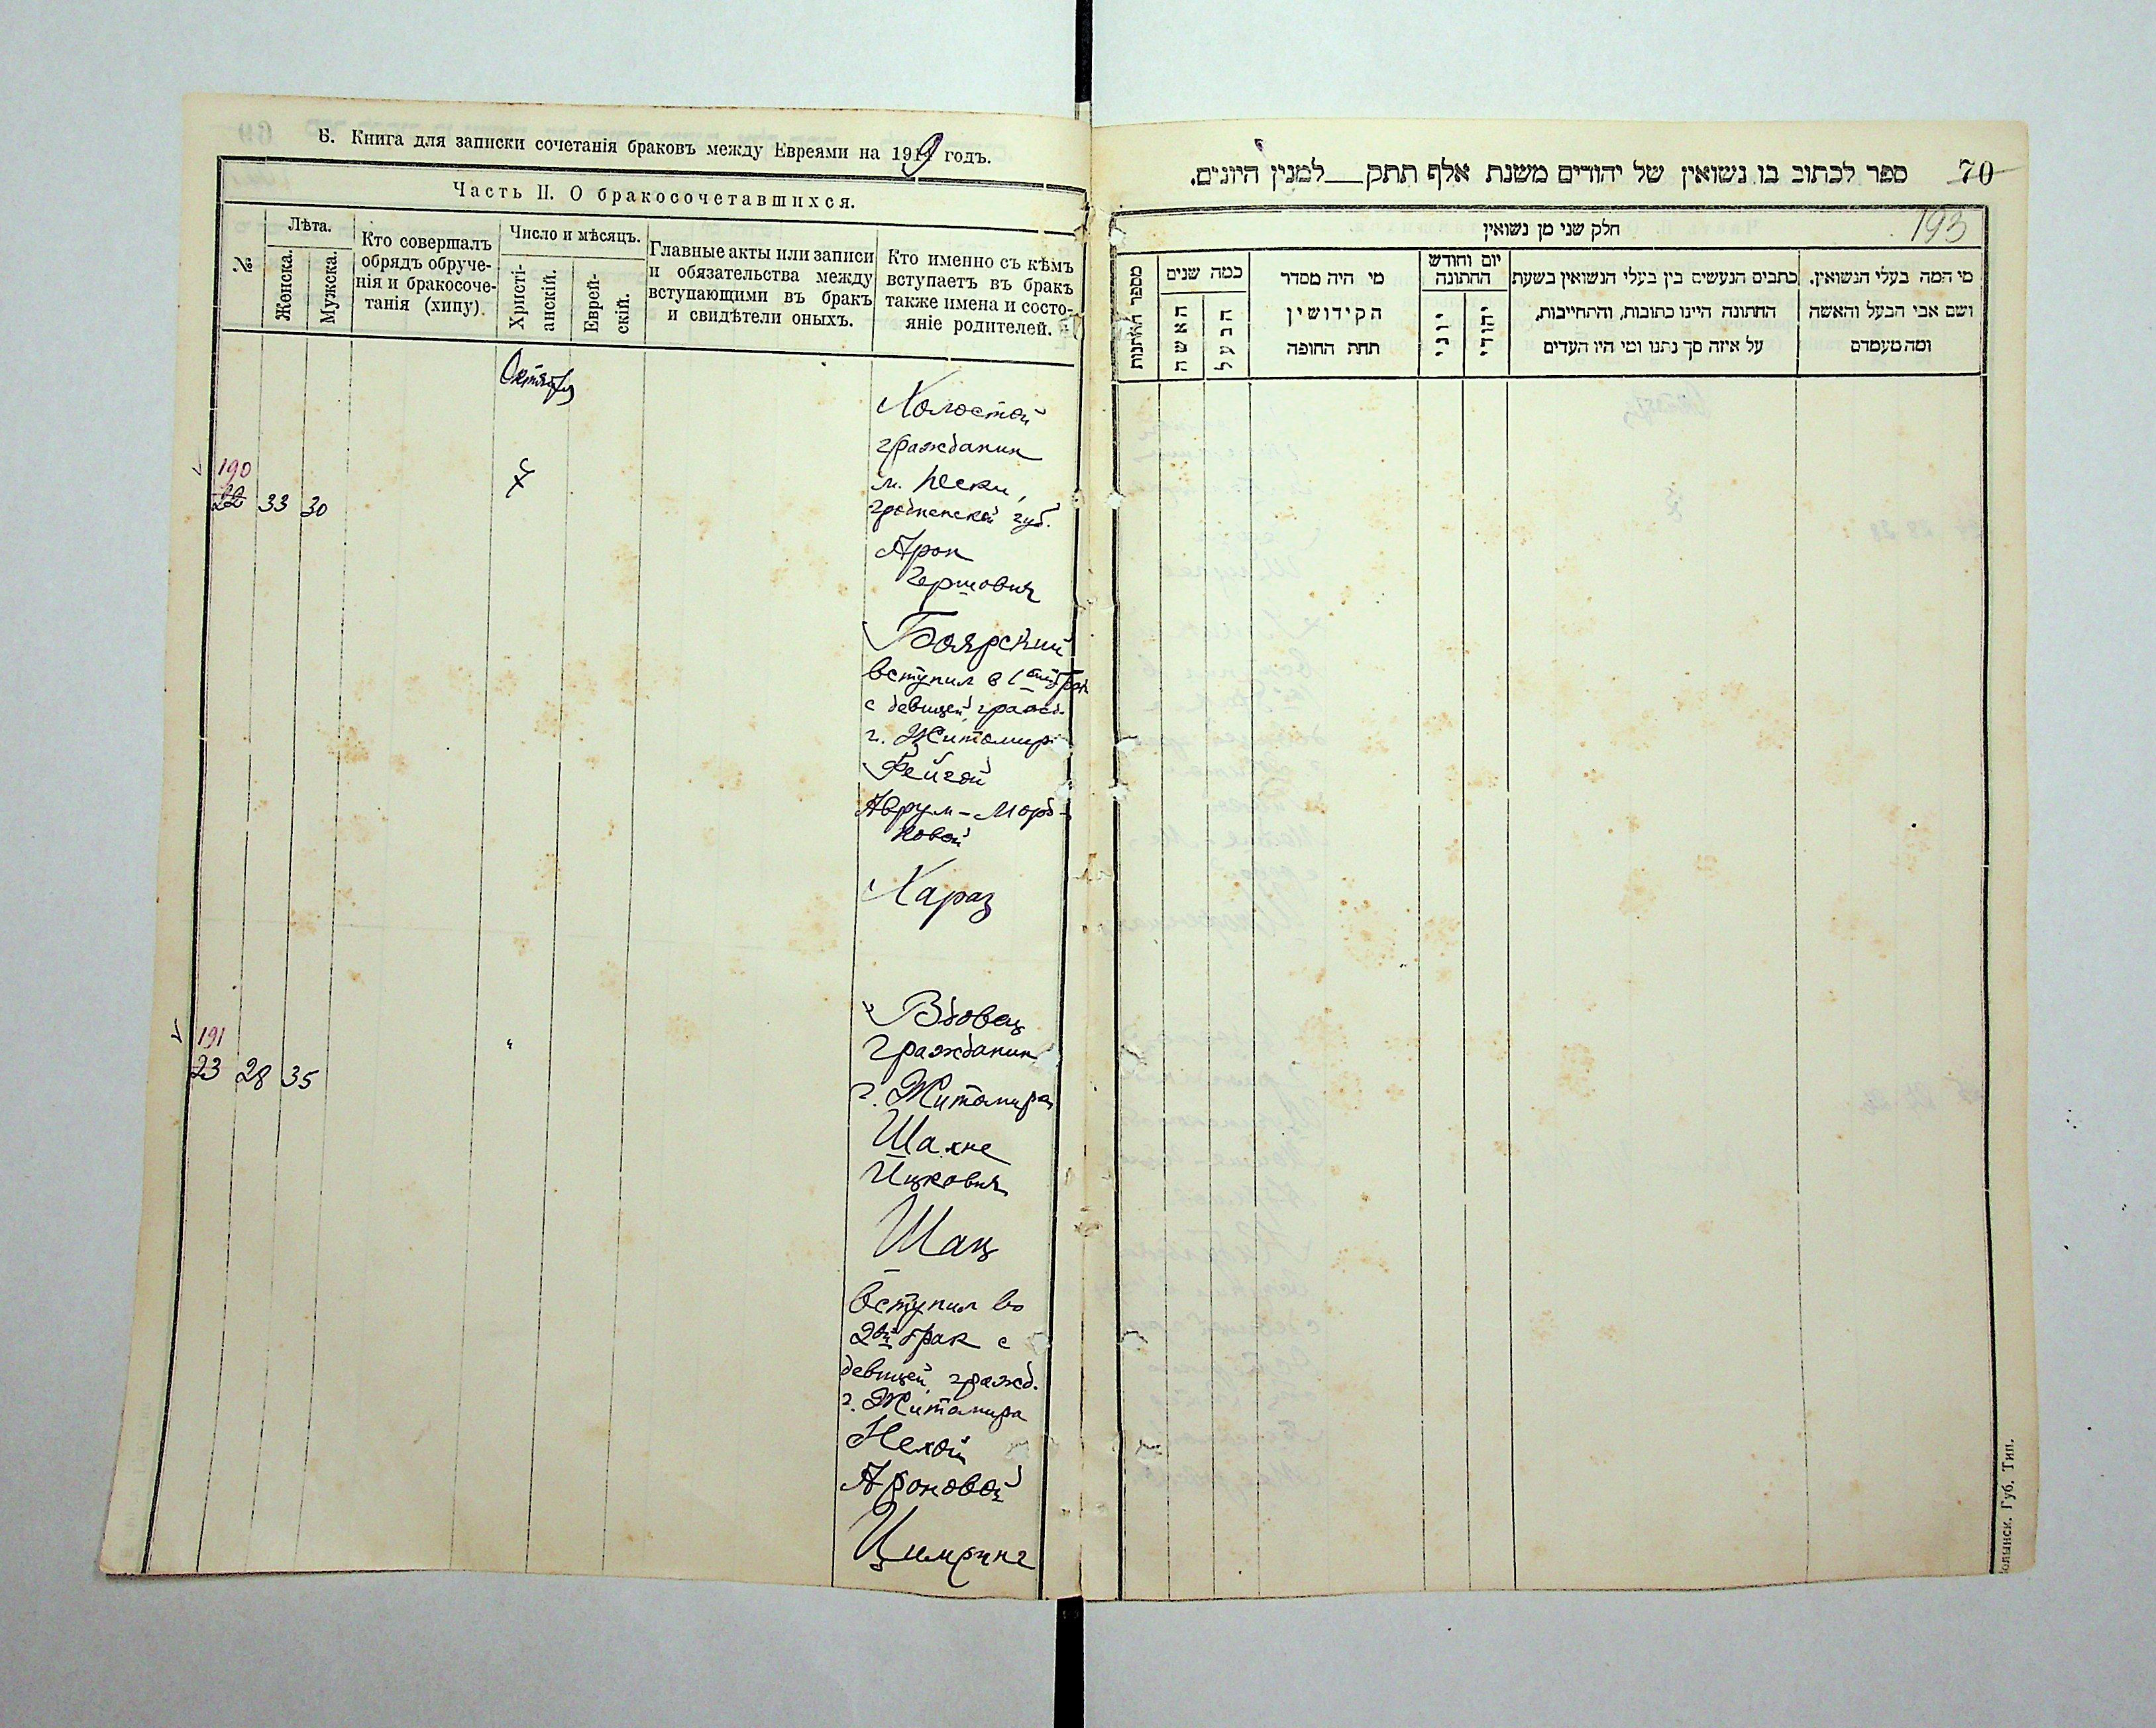 6. Книга для записки сочетанія браковъ между Евреями на 1919 годъ.
Часть II. О бракосочетавшихся.
№
Лѣта.
Женска.
Мужска.
Кто совершалъ
обрядъ обруче-
нія и бракосоче-
танія (хипу).
Число и мѣсяцъ.
Христі-
анскій.
Еврей-
скій.
Главные акты или записи
и обязательства между
вступающими въ бракъ
и свидѣтели оныхъ.
Кто именно съ кѣмъ
вступаетъ въ бракъ
также имена и состо-
яніе родителей.
Октябрь
190
22 33 30
Холостой
гражданин
м. Пески,
гродненской губ.
Арон
Гершович
Боярский
вступил в 1ый брак
с девицей, гражд.
г. Житомир
Фейгой
Аврум-Морд-
ковой
Хараз
191
23 28 35
"
Вдовец
гражданин
г. Житомира
Шахне
Ицкович
Шац
вступил во
2ой брак с
девицей, гражд.
г. Житомира
Нехой
Ароновой
Цимринг
70
ספר לכתוב בו נשואין של יהודים משנת אלף תתק__למנין היונים.
193
חלק שני מן נשואין
מספר החתונות
כמה שנים
האשה
הבעל
מי היה מסדר
הקידושין
תחת החופה
יום וחודש
החתונה
יוני
יהודי
כתבים הנעשים בין בעלי הנשואין בשעת
החתונה היינו כתובות, והתחייבות,
על איזה סך נתנו ומי היו העדים
מי המה בעלי הנשואין.
ושם אבי הבעל והאשה
ומה מעמדם
Волынск. Губ. Тип.